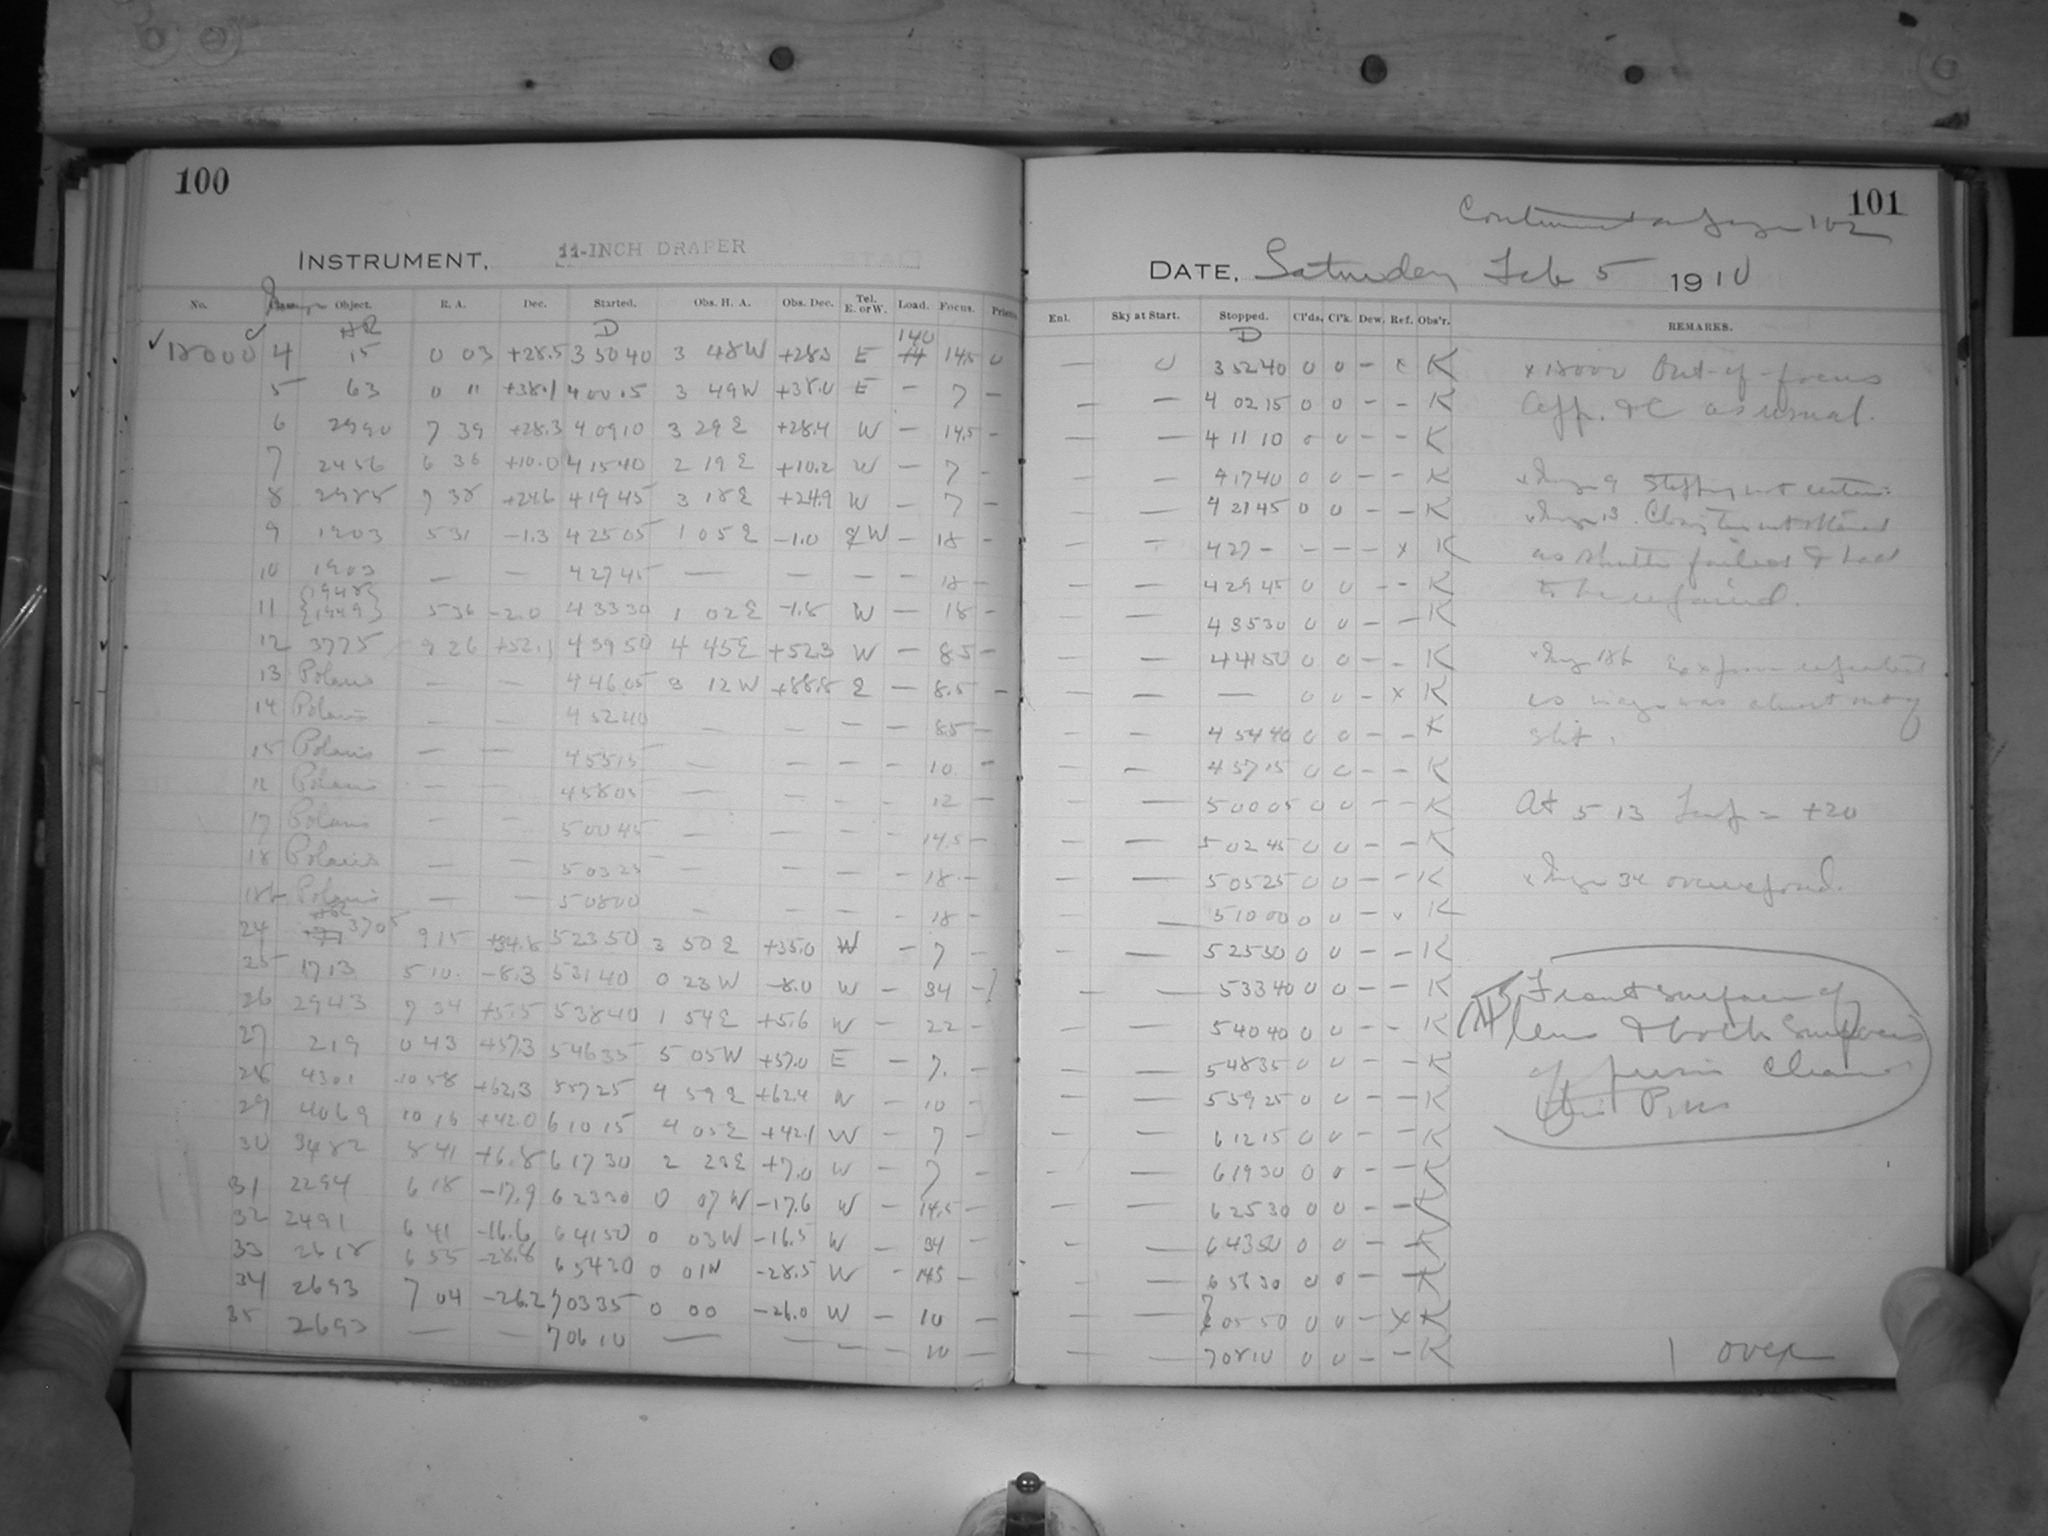 100
INSTRUMENT. 11-INCH DRAPER
No. Image Object. R. A. Dec. Started. Obs. H. A. Obs. Dec. Tel. E. or W. Load. Focus. Prisms
HR D 140
18000 4 15 0 03 +28.5 3 50 40 3 48 W +28.5 E 14.5 0
5 63 0 11 +38.1 4 00 15 3 49 W +38.0 E — 7 —
6 2990 7 39 +28.3 4 09 10 3 29 E +28.4 W — 14.5 —
7 2456 6 36 +10.0 4 15 40 2 19 E +10.2 W — 7 —
8 2985 7 38 +24.6 4 19 45 3 18 E +24.9 W — 7 —
9 1903 5 31 -1.3 4 25 05 1 05 E -1.0 W — 18 —
10 1903 — — 4 27 45 — — — — 18 —
11 {1948 1949} 5 36 -2.0 4 33 30 1 02 E -1.8 W — 18 —
12 3775 9 26 +52.1 4 39 50 4 45 E +52.3 W — 8.5 —
13 Polaris — — 4 46 05 3 12 W +88.8 E — 8.5 —
14 Polaris — — 4 52 40 — — — — 8.5 —
15 Polaris — — 4 55 15 — — — — 10 —
Polaris — — 4 58 05 — — — — 12 —
17 Polaris — — 5 00 45 — — — — 14.5 —
18 Polaris — — 5 03 25 — — — — 18 —
18b Polaris — — 5 08 00 — — — — 18 —
24 HR 3705 9 15 +34.8 5 23 50 3 50 E +35.0 W — 7 —
25 1713 5 10 -8.3 5 31 40 0 23 W -8.0 W — 34 —
26 2943 7 34 +5.5 5 38 40 1 54 E +5.6 W — 22 —
27 219 0 43 +57.3 5 46 35 5 05 W +57.0 E — 7 —
28 4301 10 58 +62.3 5 57 25 4 59 E +62.4 W — 10 —
29 4069 10 16 +42.0 6 10 15 4 05 E +42.1 W — 7 —
30 3482 8 41 +6.8 6 17 30 2 23 E +7.0 W — 7 —
31 2294 6 18 -17.9 6 23 30 0 07 W -17.6 W — 14.5 —
32 2491 6 41 -16.6 6 41 50 0 03 W -16.5 W — 34 —
33 2618 6 55 -28.8 6 54 30 0 01 W -28.5 W — 14.5 —
34 2693 7 04 -26.2 7 03 35 0 00 -26.0 W — 10 —
35 2693 — — 7 06 10 — — — — 10 —
101
Continued on page 102
DATE. Saturday Feb 5 1910
Enl. Sky at Start. Stopped. Cl'ds. Cl'k. Dew. Ref. Obs'r. REMARKS.
D
— 0 3 52 40 0 0 — x K
— — 4 02 15 0 0 — — K
— — 4 11 10 0 0 — — K
— — 4 17 40 0 0 — — K
— — 4 21 45 0 0 — — K
— — 4 27 — — — — x K
— — 4 29 45 0 0 — — K
— — 4 35 30 0 0 — — K
— — 4 41 50 0 0 — — K
— — — 0 0 — x K
— — 4 54 40 0 0 — — K
— — 4 57 15 0 0 — — K
— — 5 00 05 0 0 — — K
— — 5 02 45 0 0 — — K
— — 5 05 25 0 0 — — K
— 5 10 00 0 0 — x K
— — 5 25 50 0 0 — — K
— — 5 33 40 0 0 — — K
— — 5 40 40 0 0 — — K
— — 5 48 35 0 0 — — K
— — 5 59 25 0 0 — — K
— — 6 12 15 0 0 — — K
— — 6 19 30 0 0 — — K
— — 6 25 30 0 0 — — K
— — 6 43 50 0 0 — — K
— — 6 56 30 0 0 — — K
— — 7 05 50 0 0 — x K
— — 7 08 10 0 0 — — K
x 18000 Out-of-focus
App. &c as usual.
x Image 9 Stopping not certain.
x Image 13. Closing time not obtained
as shutter failed & had
to be repaired.
x Image 18b Exposure repeated
as image was almost out of
slit.
At 5 13 Temp = +20
x Image 34 overexposed.
Front surface of
lens & both surfaces
of prism cleaned
this P.M.
1 over